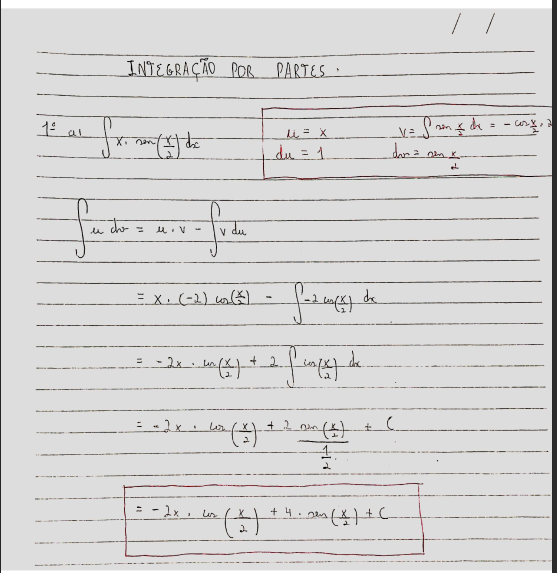 / /
INTEGRAÇÃO POR PARTES.
1º a) ∫ x. sen(x/2) dx
u = x v = ∫ sen x/2 dx = - cos x/2 . 2
du = 1 dv = sen x/2
∫ u dv = u . v - ∫ v du
= x . (-2) cos(x/2) - ∫ -2 cos(x/2) dx
= -2x . cos(x/2) + 2 . ∫ cos(x/2) dx
= -2x . cos(x/2) + 2 sen(x/2) / (1/2) + C
= -2x . cos(x/2) + 4 . sen(x/2) + C